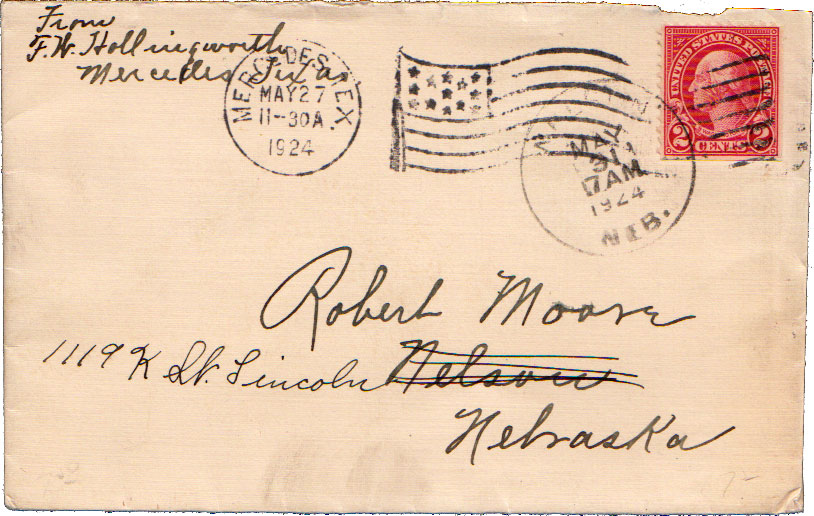 From
F.W. Hollingworth
Mercedes Texas
MERCEDES, TEX.
MAY 27
11-30 A
1924
MAY
31
7 AM
1924
NEB.
UNITED STATES POSTAGE
2 CENTS 2
Robert Moore
1119 K St. Lincoln Nelson
Nebraska